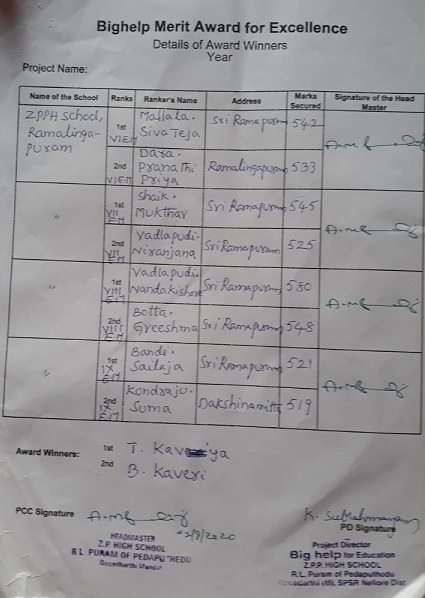 Bighelp Merit Award for Excellence
Details of Award Winners
Year
Project Name:
Name of the School Ranks Ranker's Name Address Marks Secured Signature of the Head Master
ZPPH School, Ramalinga-puram 1st VI EM Mallala. Siva Teja Sri Ramapuram 542
2nd VI EM Dara. Pranathi Priya Ramalingapuram 533
" 1st VII EM Shaik. Mukthar Sri Ramapuram 545
2nd VII EM Vadlapudi. Niranjana Sri Ramapuram 525
" 1st VIII EM Vadlapudi. Nandakishore Sri Ramapuram 580
2nd VIII EM Botta. Greeshma Sri Ramapuram 548
" 1st IX EM Bande. Sailaja Sri Ramapuram 521
2nd IX EM Kondraju. Suma Dakshinamitta 519
Award Winners: 1st T. Kavya
2nd B. Kaveri
PCC Signature
PD Signature
HEADMASTER
Z.P HIGH SCHOOL
R.L PURAM OF PEDAPUTHEDU
Project Director
Big help for Education
Z.P.P. HIGH SCHOOL
R.L. Puram of Pedaputhedu
SPSR Nellore Dist